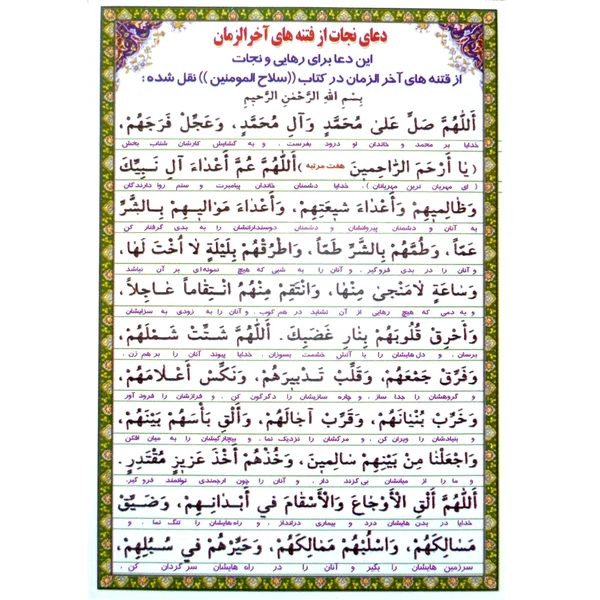 دعای نجات از فتنه های آخرالزمان
این دعا برای رهایی و نجات
از فتنه های آخر الزمان در کتاب ((سلاح المومنین)) نقل شده :
بِسْمِ اللهِ الرَّحْمٰنِ الرَّحیمِ
أَللّٰهُمَّ صَلِّ عَلىٰ مُحَمَّدٍ وَآلِ مُحَمَّدٍ، وَعَجِّلْ فَرَجَهُمْ،
خدایا بر محمد و خاندان او درود بفرست. و به گشایش کارشان شتاب بخش
(يٰا أَرْحَمَ الرّٰاحِمينَ هفت مرتبه) أَللّٰهُمَّ عُمَّ أَعْدٰاءَ آلِ نَبِيِّكَ
(ای مهربان ترین مهربانان). خدایا دشمنان خاندان پیامبرت و ستم روا دارندگان
وَظٰالِميهِمْ وَأَعْدٰاءَ شيعَتِهِمْ، وَأَعْدٰاءَ مَوٰالِيهِمْ بِالشَّرِّ
به آنان و دشمنان پیروانشان و دشمنان دوستدارانشان را به بدی گرفتار کن
عَمّاً، وَطُمَّهُمْ بِالشَّرِّ طَمّاً، وَاطْرُقْهُمْ بِلَيْلَةٍ لاٰ اُخْتَ لَهٰا،
و آنان را در بدی فروگیر. و آنان را به شبی که هیچ نمونه‌ای بر آن نباشد
وَسٰاعَةٍ لاٰمَنْجىٰ مِنْهٰا، وَانْتَقِمْ مِنْهُمُ انْتِقٰاماً عٰاجِلاً،
و به دمی که هیچ رهایی از آن نشاید در هم کوب. و آنان را به زودی به سزایشان
وَأَحْرِقْ قُلُوبَهُمْ بِنٰارِ غَضَبِكَ. أَللّٰهُمَّ شَتِّتْ شَمْلَهُمْ،
برسان. و دل‌هایشان را با آتش خشمت بسوزان. خدایا پیوند آنان را بر هم زن.
وَفَرِّقْ جَمْعَهُمْ، وَقَلِّبْ تَدْبيرَهُمْ، وَنَكِّسْ أَعْلاٰمَهُمْ،
و گروهشان را جدا ساز. و چاره سازیشان را دگرگون کن. و فرازشان را فرود آور
وَخَرِّبْ بُنْيٰانَهُمْ، وَقَرِّبْ آجٰالَهُمْ، وَأَلْقِ بَأْسَهُمْ بَيْنَهُمْ،
و بنیادشان را ویران کن. و مرگشان را نزدیک نما. و بیچارگیشان را به میان افکن
وَاجْعَلْنٰا مِنْ بَيْنِهِمْ سٰالِمينَ، وَخُذْهُمْ أَخْذَ عَزيزٍ مُقْتَدِرٍ.
و ما را از میانشان بی‌گزند دار. و آنان را چون ارجمندی توانمند فرو گیر.
أَللّٰهُمَّ أَلْقِ الْأَوْجٰاعَ وَالْأَسْقٰامَ في أَبْدٰانِهِمْ، وَضَيِّقْ
خدایا در بدن هایشان درد و بیماری درانداز. و راه‌هایشان را تنگ نما. و
مَسٰالِكَهُمْ، وَاسْلُبْهُمْ مَمٰالِكَهُمْ، وَحَيِّرْهُمْ في سُبُلِهِمْ،
سرزمین هایشان را بگیر و آنان را در راه هایشان سر گردان کن.